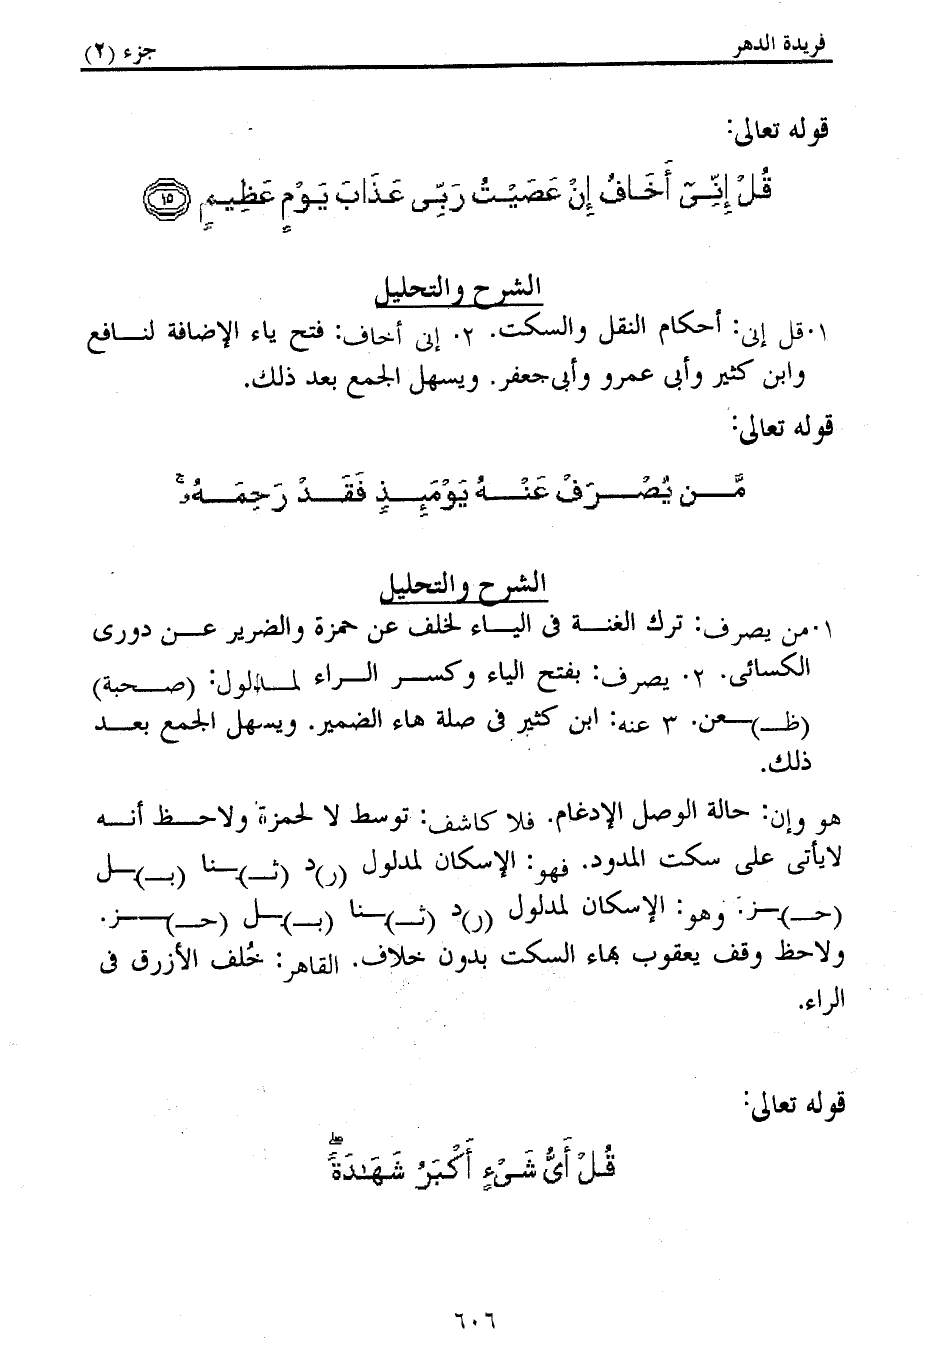 فريدة الدهر
جزء (٢)
قوله تعالى:
قُلْ إِنِّىٓ أَخَافُ إِنْ عَصَيْتُ رَبِّى عَذَابَ يَوْمٍ عَظِيمٍ ١٥
الشرح والتحليل
١. قل إنى: أحكام النقل والسكت. ٢. إنى أخاف: فتح ياء الإضافة لنـــافع
وابن كثير وأبى عمرو وأبى جعفر. ويسهل الجمع بعد ذلك.
قوله تعالى:
مَّـــن يُصْـــرَفْ عَنْـــهُ يَوْمَئِـــذٍ فَقَـــدْ رَحِمَـــهُۥ ۚ
الشرح والتحليل
١. من يصرف: ترك الغنـــة فى اليـــاء لخلف عن حمزة والضرير عـــن دورى
الكسائى. ٢. يصرف: بفتح الياء وكســـر الـــراء لمدلول: (صـــحبة)
(ظـ)ـــعن. ٣ عنه: ابن كثير فى صلة هاء الضمير. ويسهل الجمع بعـــد
ذلك.
هو وإن: حالة الوصل الإدغام. فلا كاشف: توسط لا لحمزة ولاحـــظ أنـــه
لايأتى على سكت المدود. فهو: الإسكان لمدلول (ر)د (ثـ)ـــنا (بـ)ـــل
(حـ)ـــز: وهو: الإسكان لمدلول (ر)د (ثـ)ـــنا (بـ)ـــل (حـ)ـــز.
ولاحظ وقف يعقوب بهاء السكت بدون خلاف. القاهر: خُلف الأزرق فى
الراء.
قوله تعالى:
قُلْ أَىُّ شَىْءٍ أَكْبَرُ شَهَـٰدَةً ۖ
٦٠٦